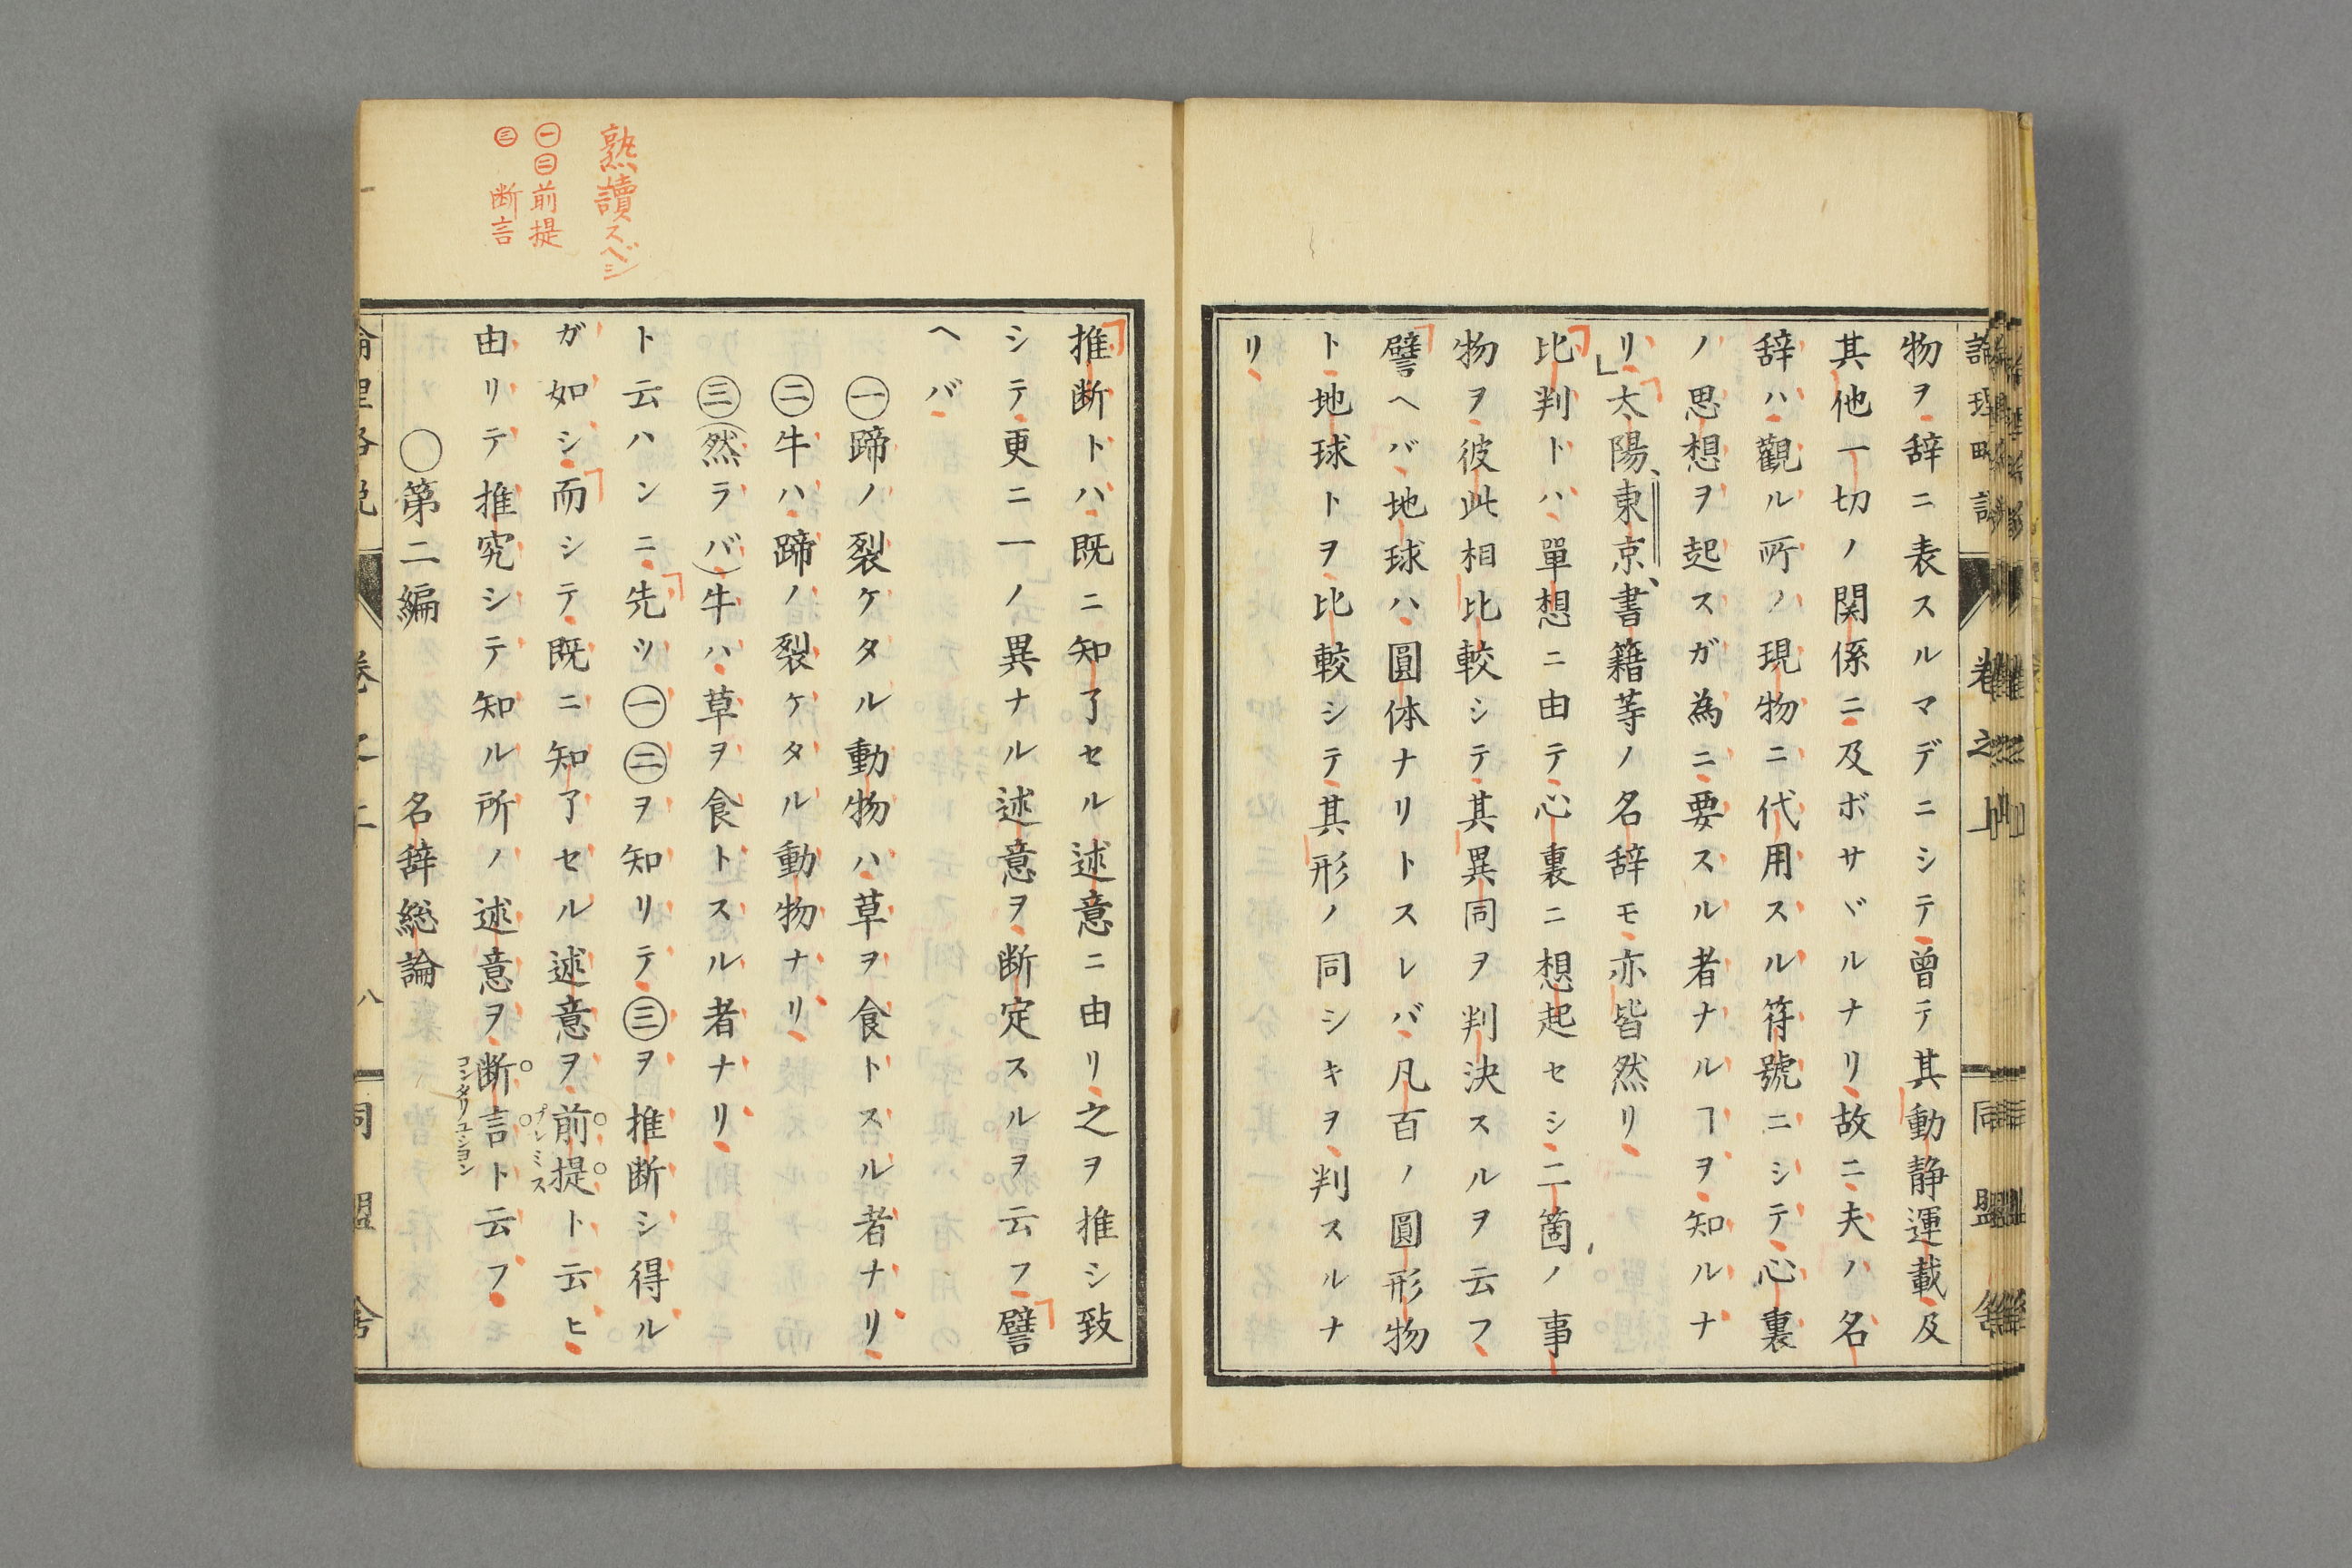 論理略説
卷之上
同盟舎
物ヲ辞ニ表スルマデニシテ曽テ其動静運載及
其他一切ノ関係ニ及ボサヾルナリ故ニ夫ハ名
辞ハ觀ル所ノ現物ニ代用スル符號ニシテ心裏
ノ思想ヲ起スガ為ニ要スル者ナルヿヲ知ルナ
リ太陽東京書籍等ノ名辞モ亦皆然リ
比判トハ單想ニ由テ心裏ニ想起セシ二箇ノ事
物ヲ彼此相比較シテ其異同ヲ判決スルヲ云フ
譬ヘバ地球ハ圓体ナリトスレバ凡百ノ圓形物
ト地球トヲ比較シテ其形ノ同シキヲ判スルナ
リ
推断トハ既ニ知了セル述意ニ由リ之ヲ推シ致
シテ更ニ一ノ異ナル述意ヲ断定スルヲ云フ譬
ヘバ
㊀蹄ノ裂ケタル動物ハ草ヲ食トスル者ナリ
㊁牛ハ蹄ノ裂ケタル動物ナリ
㊂(然ラバ)牛ハ草ヲ食トスル者ナリ
ト云ハンニ先ツ㊀㊁ヲ知リテ㊂ヲ推断シ得ル
ガ如シ而シテ既ニ知了セル述意ヲ前提ト云ヒ
プレミス
由リテ推究シテ知ル所ノ述意ヲ断言ト云フ
コンクリュシヨン
〇第二編 名辞総論
論理略説
卷之上
八
同盟舎
熟讀スベシ
㊀㊁前提
㊂ 断言